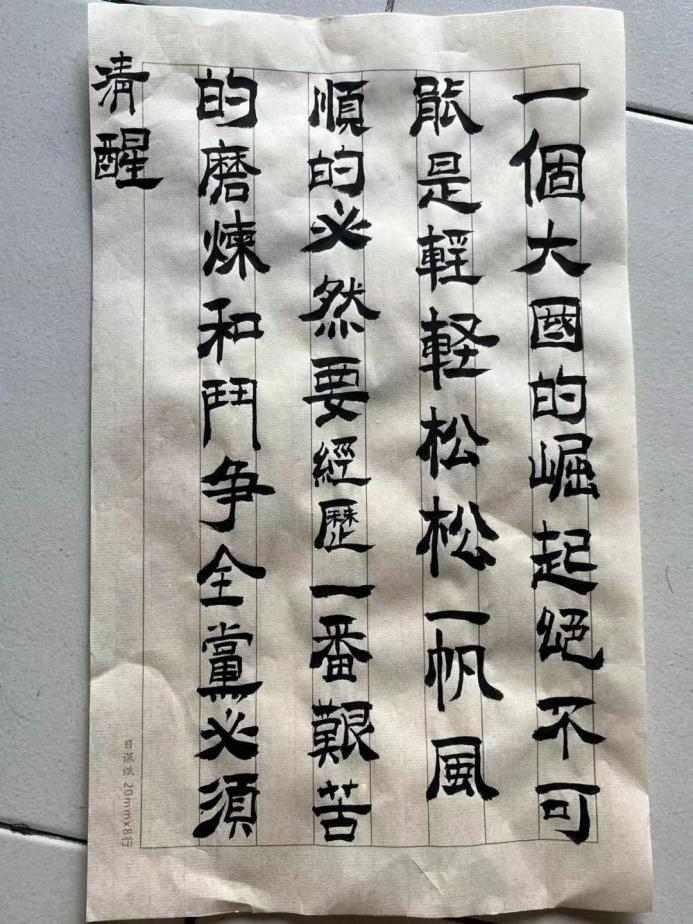 一個大國的崛起絕不可
能是輕軽松松一帆風
順的必然要經歷一番艱苦
的磨煉和鬥争全黨必須
清醒
日课纸 20mmx8行